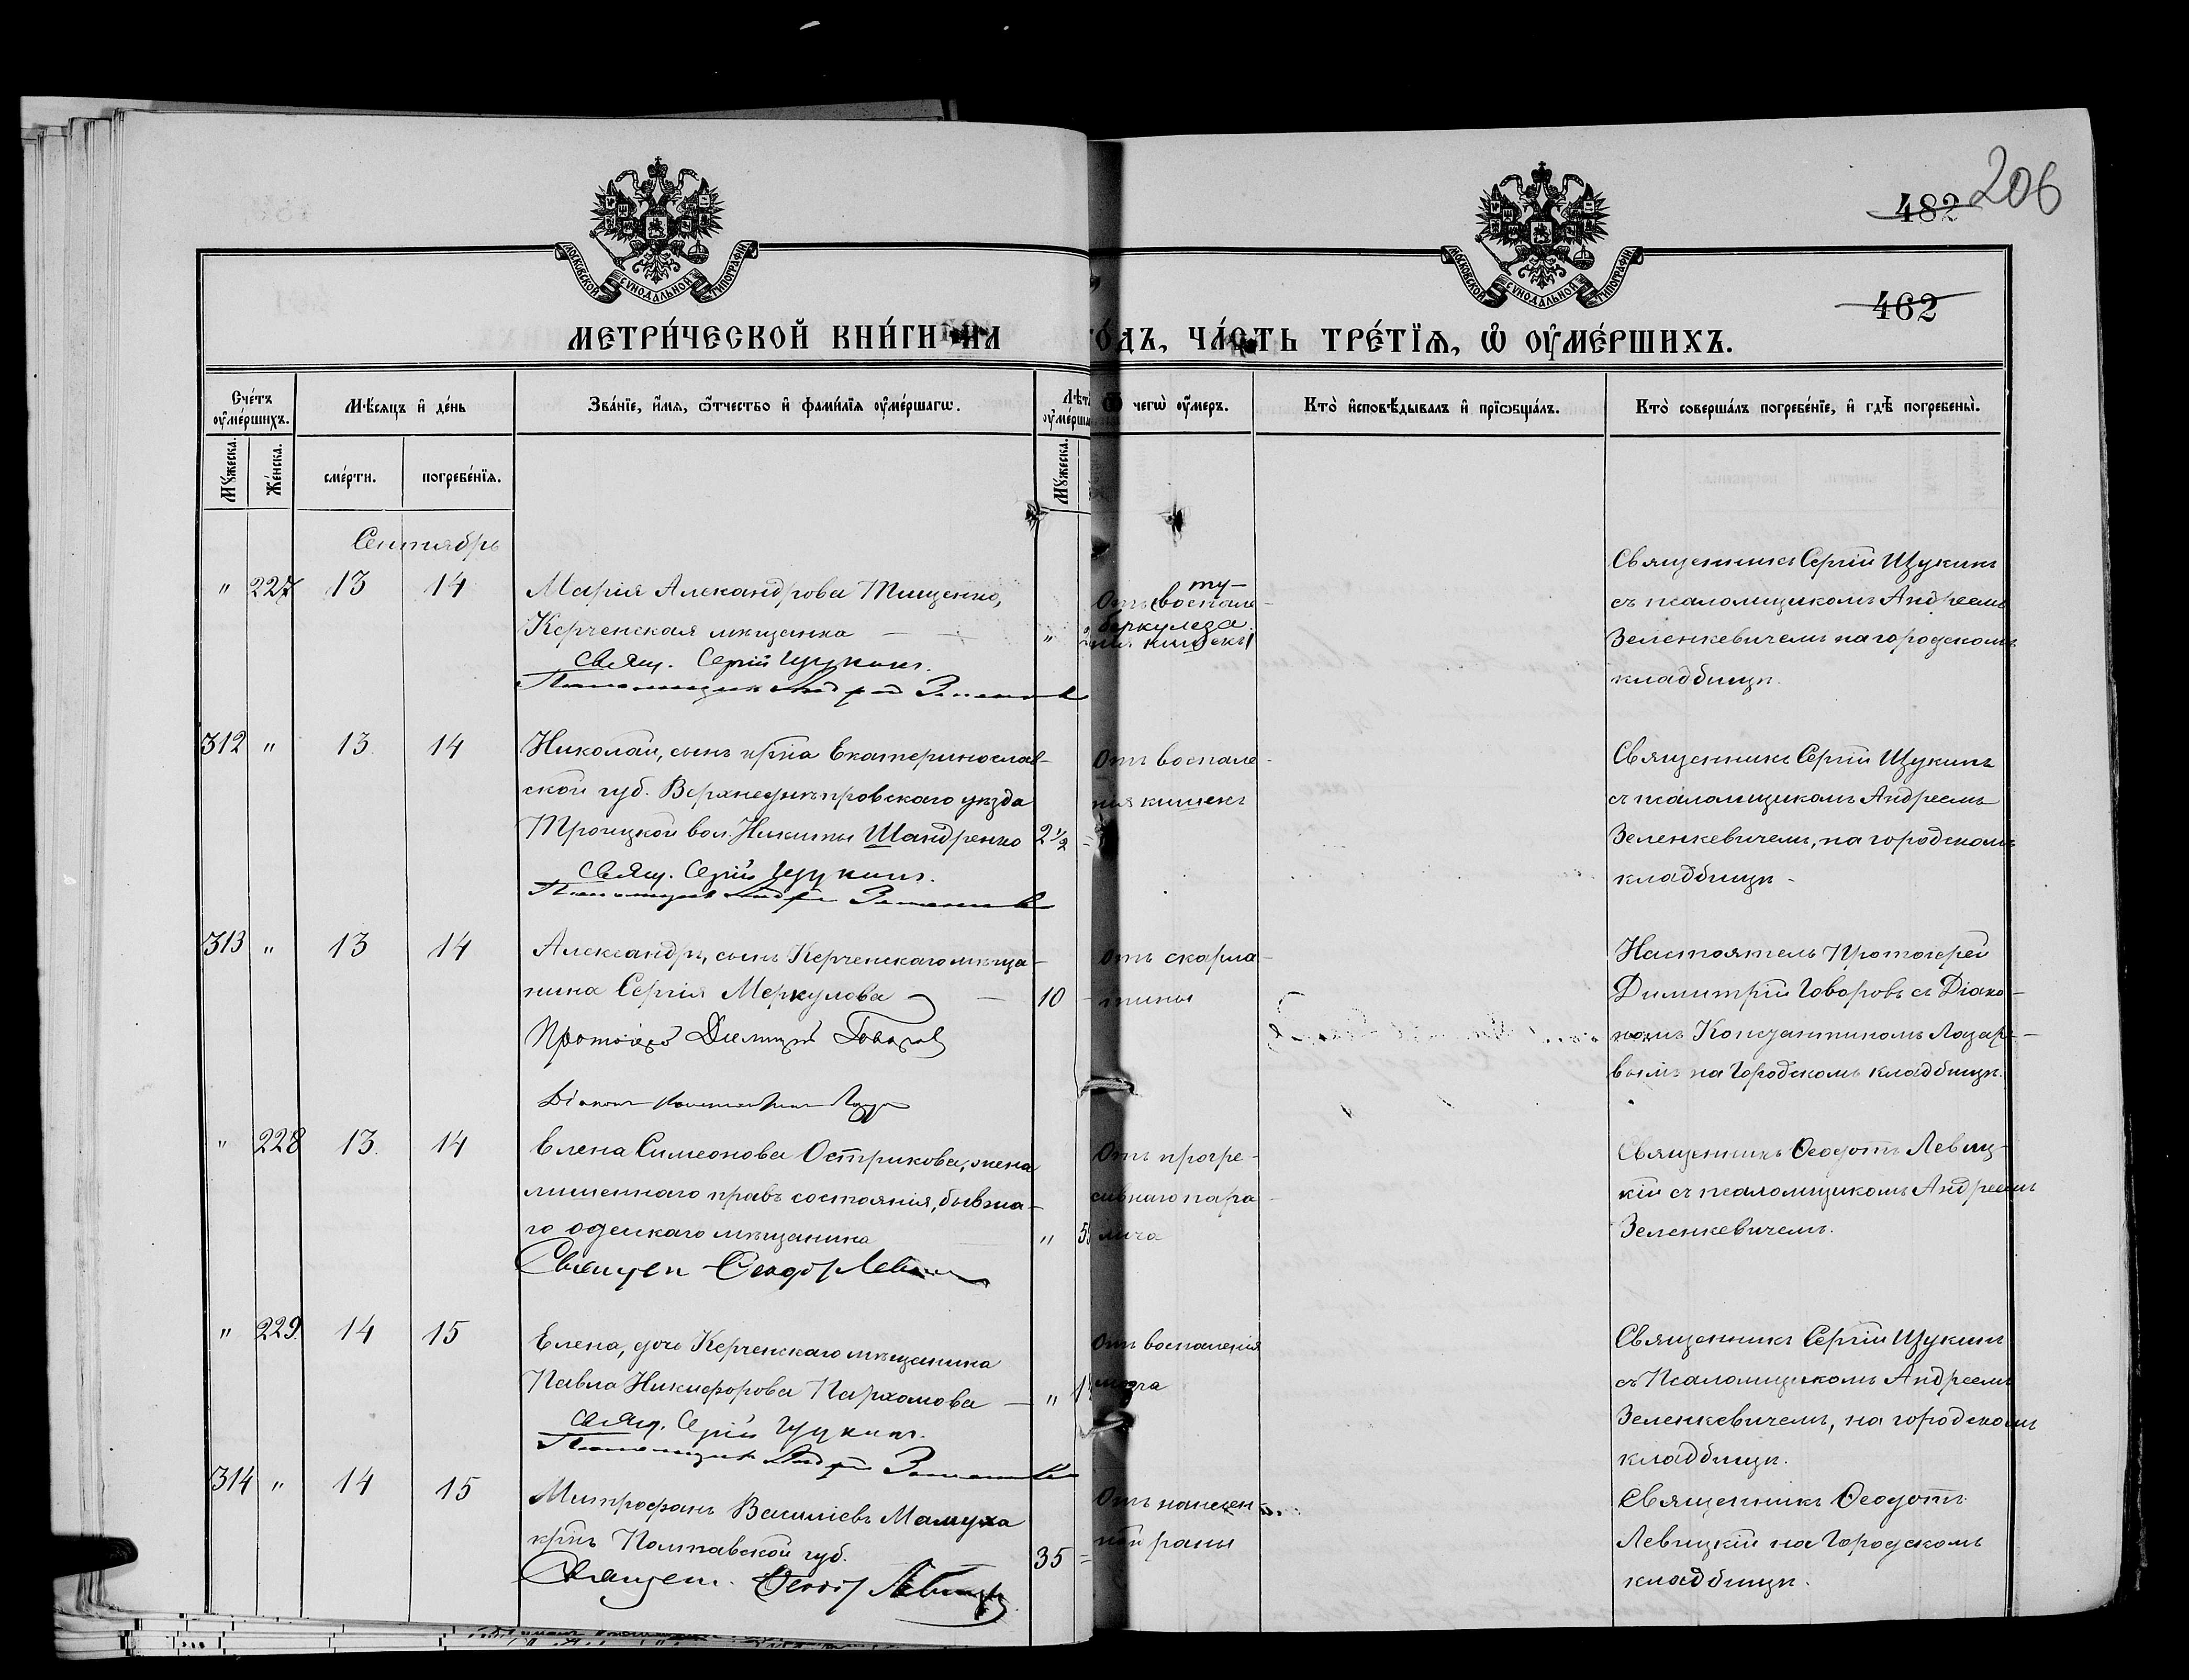 206
482
462
МОСКОВСКОЙ СѴНОДАЛЬНОЙ ТИПОГРАФІИ
МОСКОВСКОЙ СѴНОДАЛЬНОЙ ТИПОГРАФІИ
МЕТРИ́ЧЕСКОЙ КНИ́ГИ НА ГО́ДЪ, ЧА́СТЬ ТРЕ́ТЇѦ, Ѡ҆ ОУ҆МЕ́РШИХЪ.
Сче́тъ оу҆ме́ршихъ.
Мѣ́сяцъ и҆ де́нь
Зва́нїе, и҆́мя, ѻ҆́тчество и҆ фами́лїя оу҆ме́ршагѡ.
Лѣ́та оу҆ме́рша
Ѿ чегѡ̀ оу҆́меръ.
Кто̀ и҆сповѣ́дывалъ и҆ прїѡбща́лъ.
Кто̀ соверша́лъ погребе́нїе, и҆ гдѣ̀ погребены̀.
Мꙋ́жеска.
Же́нска.
сме́рти.
погребе́нїя.
Мꙋ́жеска.
Сентябрь
" 227 13 14
Марія Александрова Тищенко,
Керченская мѣщанка "
Свящ. Сергій Щукинъ.
Псаломщикъ Андрей
Отъ воспале-
ту-
беркулеза
нія кишекъ
Священникъ Сергій Щукинъ
съ псаломщикомъ Андреемъ
Зеленкевичемъ на городскомъ
кладбищѣ.
312 " 13 14
Николай, сынъ крѣ-на Екатеринослав-
ской губ. Верхнеднѣпровскаго уѣзда
Троицкой вол. Никиты Шандренко 2 1/2
Свящ. Сергій Щукинъ.
Псаломщикъ Андрей
Отъ воспале-
нія кишекъ
Священникъ Сергій Щукинъ
съ псаломщикомъ Андреемъ
Зеленкевичемъ, на городскомъ
кладбищѣ -
313 " 13 14
Александръ, сынъ Керченскаго мѣща-
нина Сергія Меркулова 10
Протоіерей Димитрій Говоровъ
Діаконъ Константинъ
Отъ скарла-
тины
Настоятель Протоіерей
Димитрій Говоровъ съ Діако-
номъ Константиномъ Лазаре-
вымъ на Городскомъ кладбищѣ.
" 228 13. 14
Елена Симеонова Острикова, жена
лишеннаго правъ состоянія, бывша-
го одесскаго мѣщанина "
Священ Ѳеодот Левицкій
Отъ прогре-
сивнаго пара-
лича
Священникъ Ѳеодотъ Левиц-
кій съ псаломщикомъ Андреемъ
Зеленкевичемъ.
" 229. 14 15
Елена, дочь Керченскаго мѣщанина
Павла Никифорова Пархомова — "
Свящ. Сергій Щукинъ.
Псаломщикъ Андрей
Отъ воспаленія
мозга
Священникъ Сергій Щукинъ
съ Псаломщикомъ Андреемъ
Зеленкевичемъ, на городскомъ
кладбищѣ.
314 " 14 15
Митрофанъ Василіевъ Мамуха
крѣ-нъ Полтавской губ. 35
Священ. Ѳеодот Левицкій
Отъ нанесен-
ной раны
Священникъ Ѳеодотъ
Левицкій на Городскомъ
кладбищѣ.